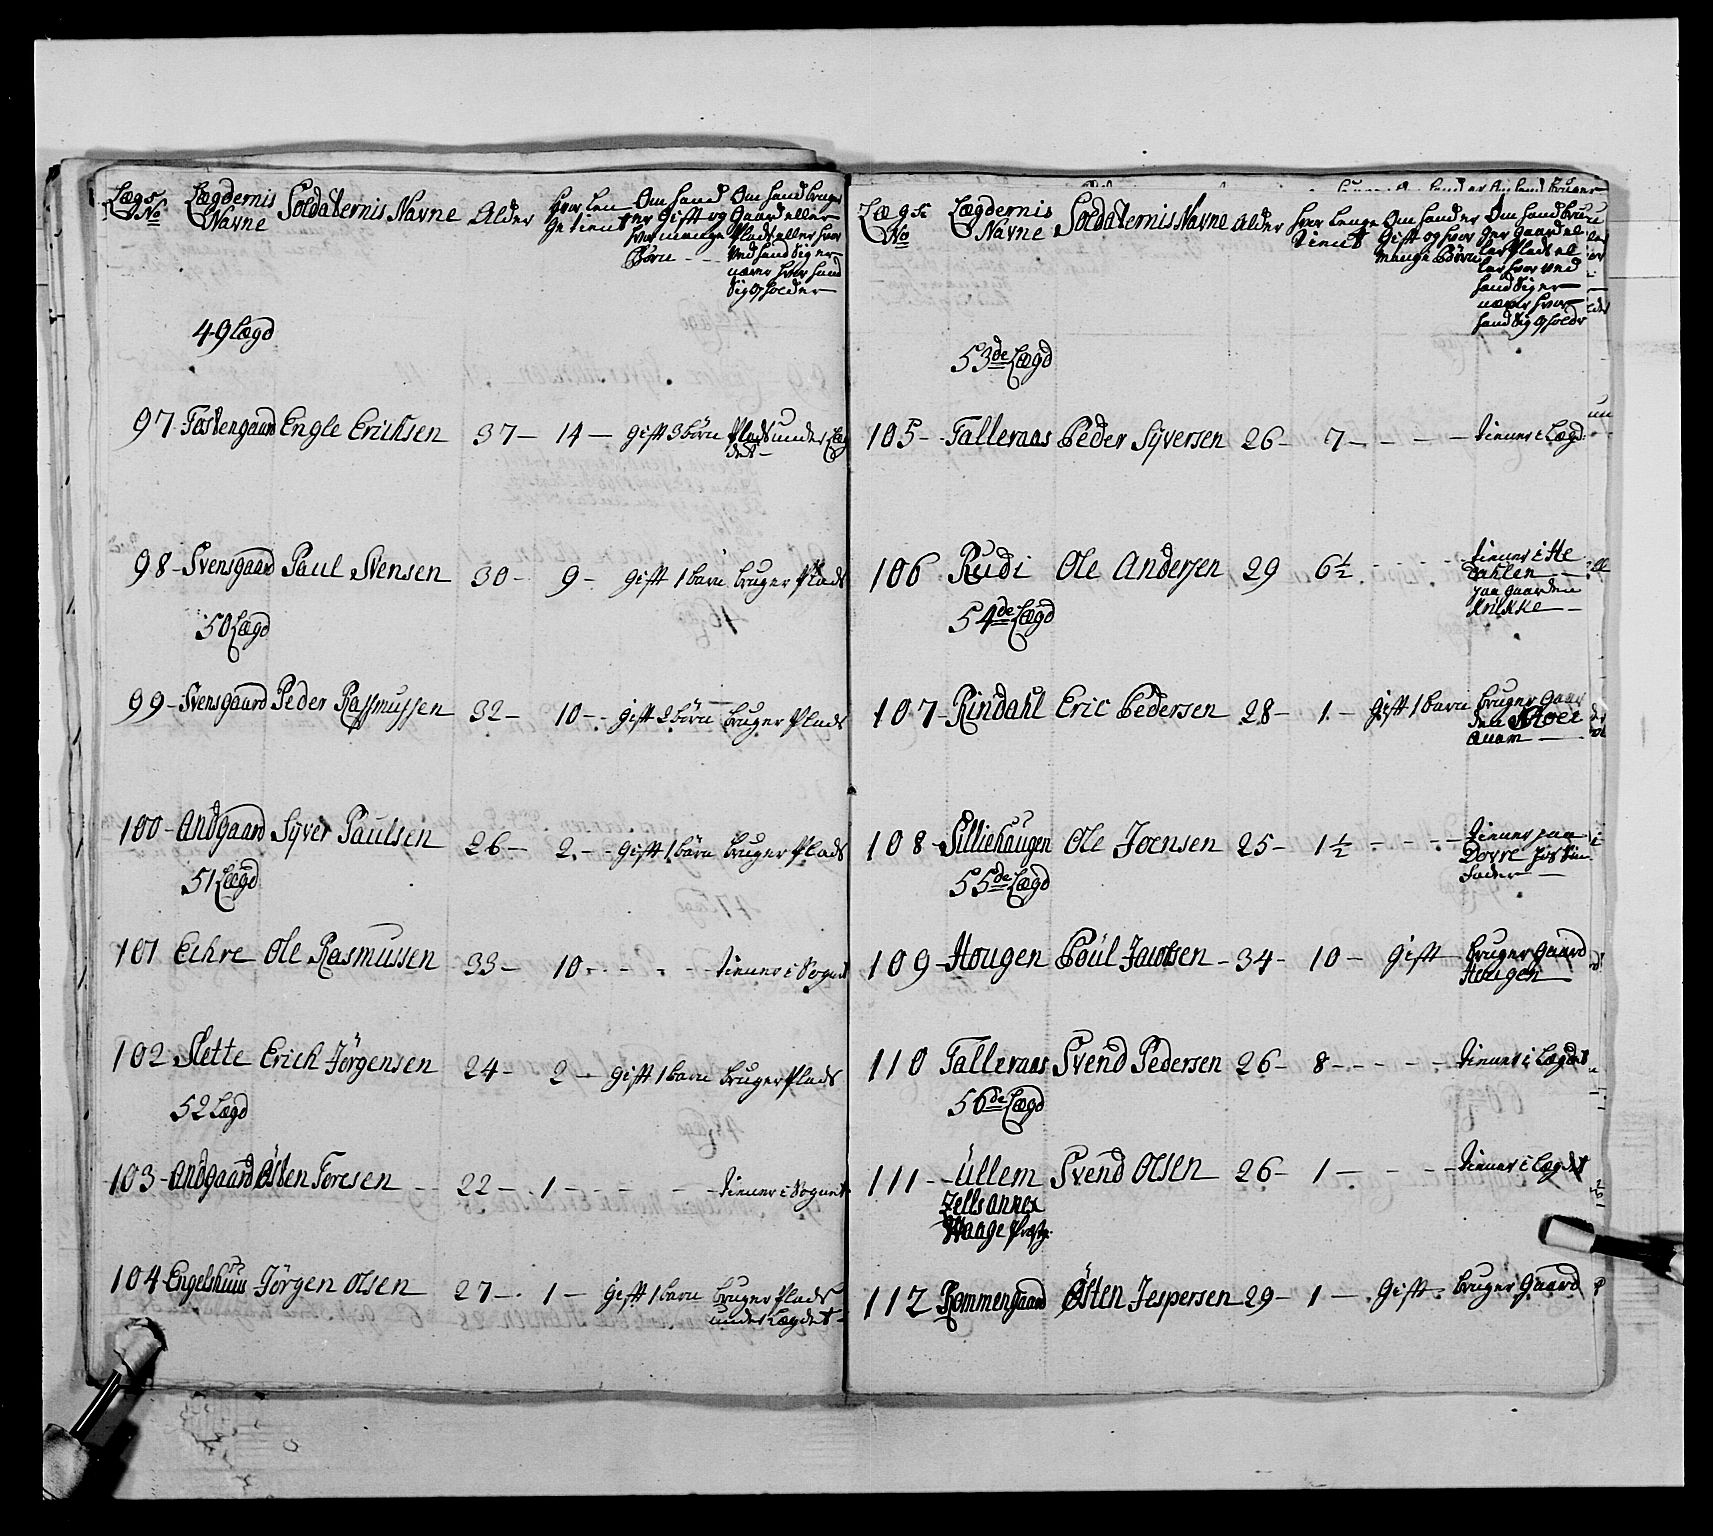 Lægs No Lægdernis Navne Soldaternis Navne Alder Hvor Lenge tient Om hand er Gift og hvor mange Börn Om hand bruger Gaard eller Plads eller hvor ved hand Sig ernærer hvor hand Sig opholder
49 Lægd
97 Engle Erichsen 37 14 gift 3 börn Plads under Lægdet
98 Svensgaard Paul Svensen 30 9 gift 1 barn bruger Plads
50 Lægd
99 Svensgaard Peder Rassmussen 32 10 gift 2 börn bruger Plads
100 Andgaard Syver Paulsen 26 2 gift 1 börn bruger Plads
51 Lægd
101 Echre Ole Rasmussen 33 10 tiener i Sognet
102 Slette Erich Jörgensen 24 2 gift 1 barn bruger Plads
52 Lægd
103 Andgaard Östen Toresen 22 1 tiener i Sognet
104 Engelshuus Jörgen Olsen 27 1 gift 1 barn bruger Plads
under Lægdet
Lægs No Lægdernis Navne Soldaternis Navne Alder hvor lenge tient Om hand er Gift og hvor mange Börn Om hand bruger Gaard eller Plads eller hvor ved hand Sig ernærer hvor hand Sig opholdr
53de Lægd
105 Talleraas Peder Syversen 26 7 tiener i Lægd
106 Rudi Ole Andersen 29 6½ tiener i He
dahlen
paa gaarden
54de Lægd
107 Rindahl Eric Pedersen 28 1 gift 1 barn bruger Gaar
den
108 Silliehaugen Ole Joensen 25 1½ tiener paa
Dovre hos Sin
fader
55de Lægd
109 Hougen Poul Jacobsen 34 10 gift bruger Gaard
Hougen
110 Talleraas Svend Pedersen 26 8 tiener i Lægdet
56de Lægd
111 Ullem Svend Olsen 26 1 tiener i Lægdet
Zells annex
Waage
112 Östen Jespersen 29 1 gift bruger Gaard